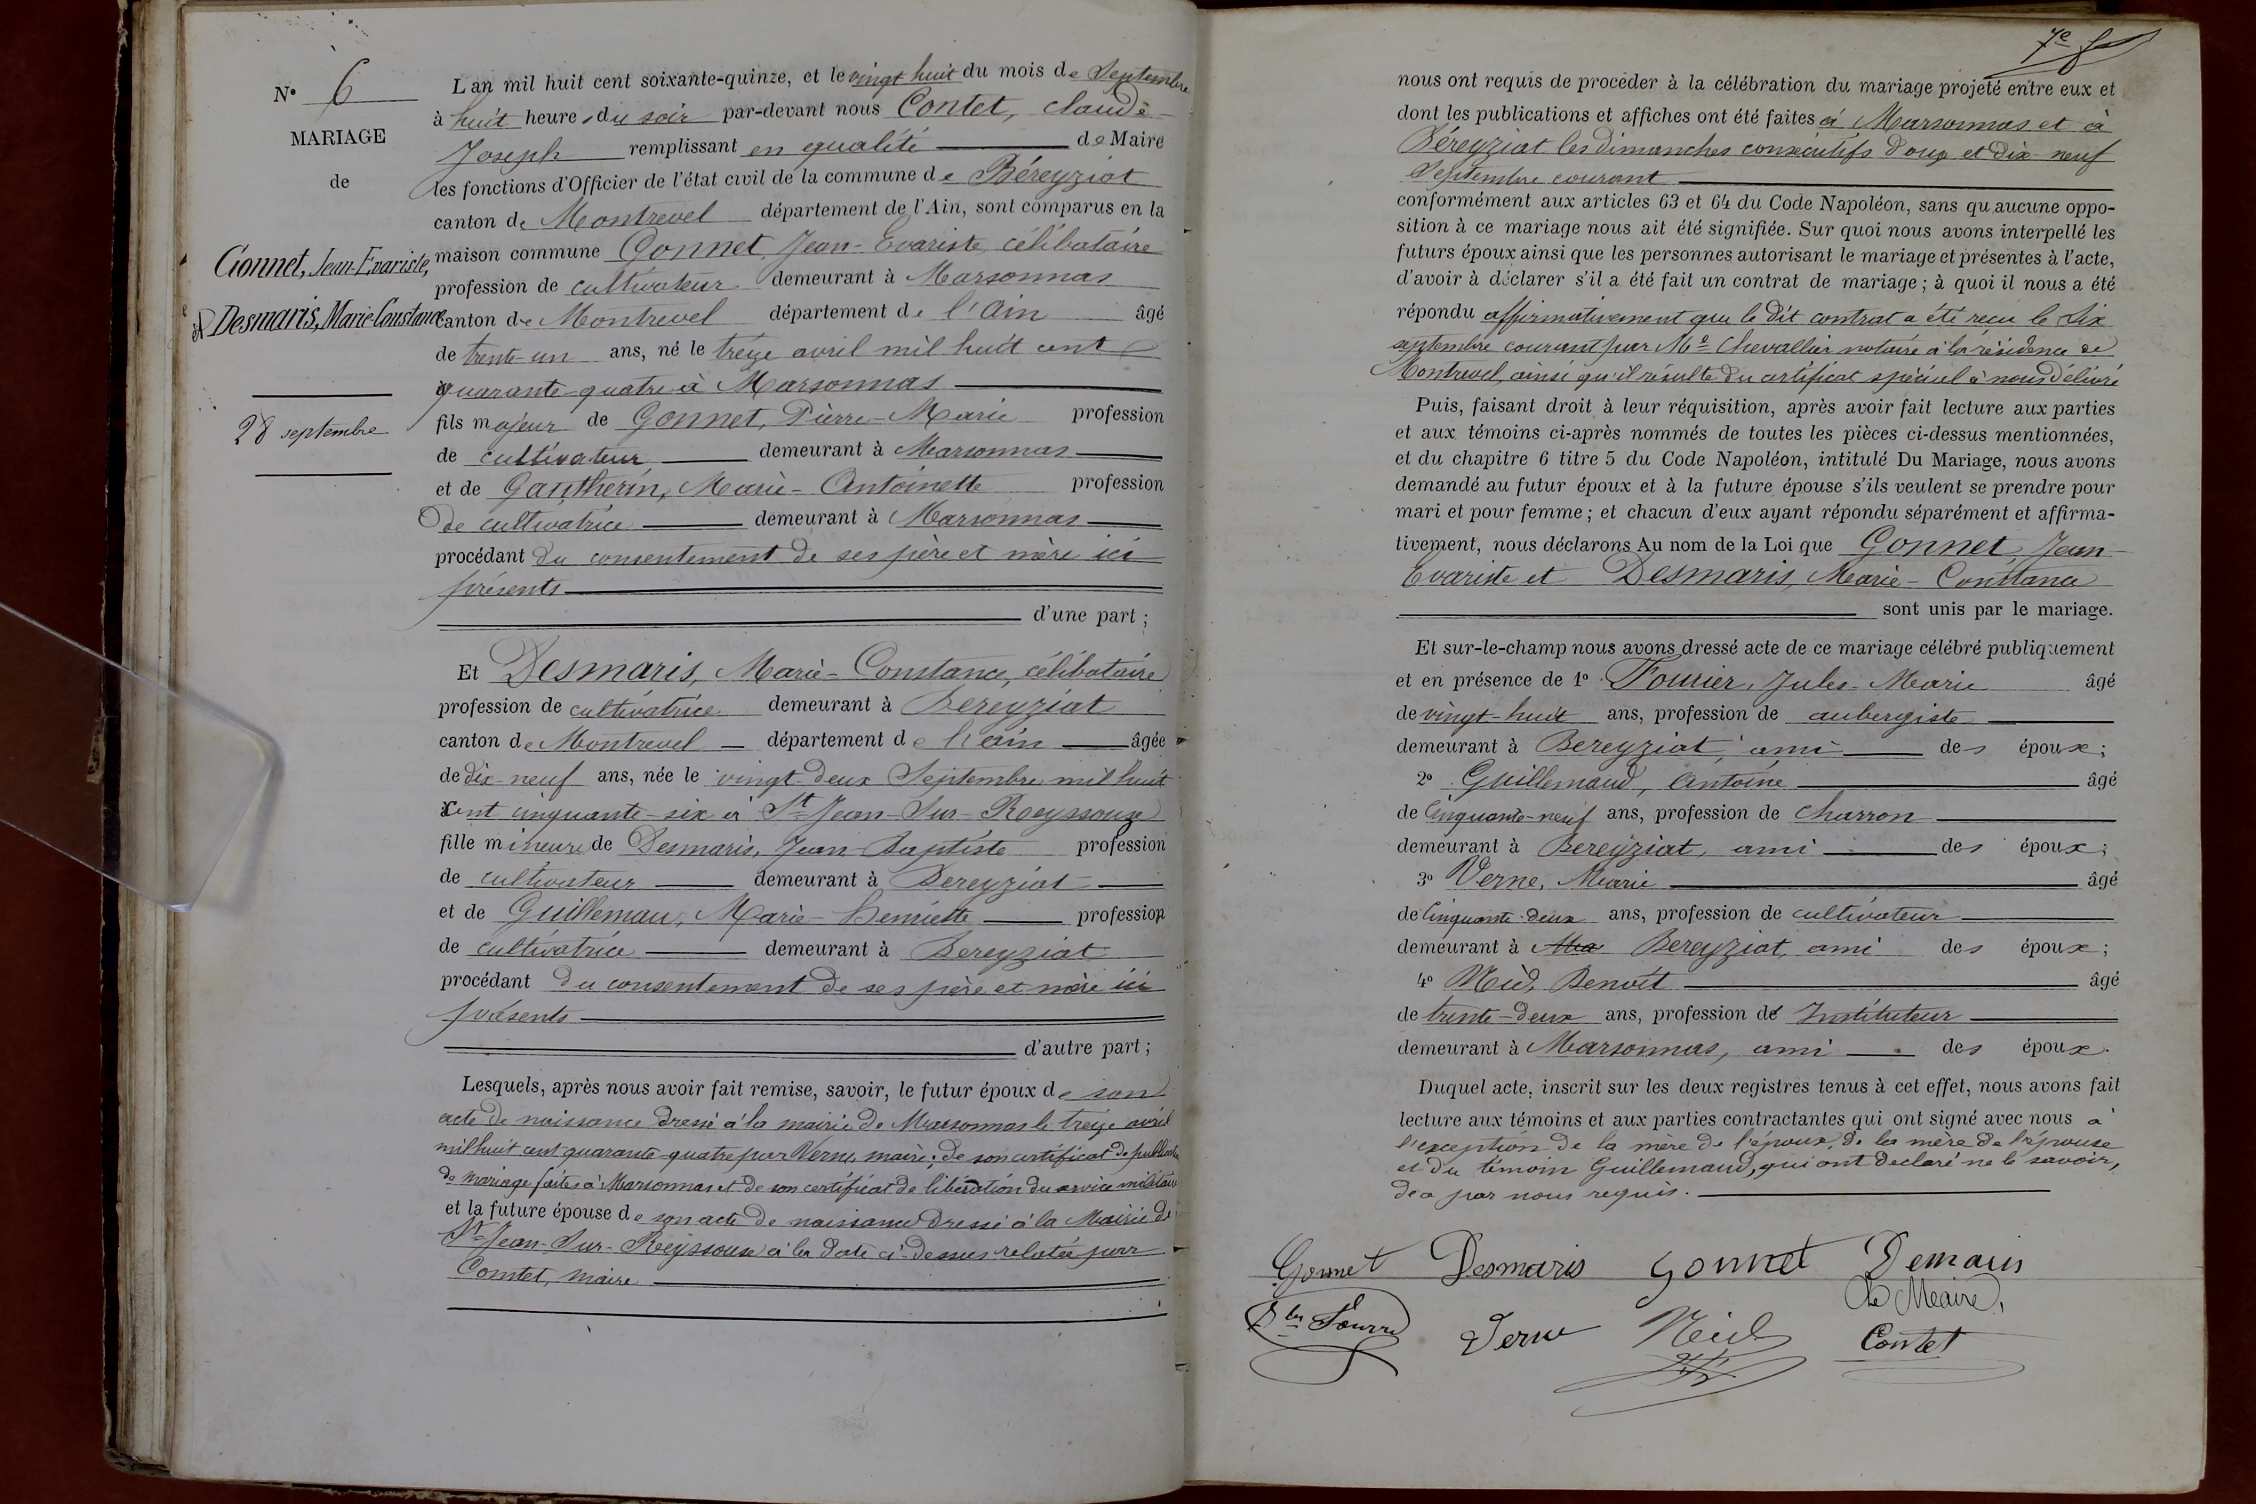 N° 6
MARIAGE
de
Gonnet, Jean-Evariste,
& Desmaris, Marie-Constance
28 septembre
L'an mil huit cent soixante-quinze, et le vingt huit du mois de Septembre
à huit heures du soir par-devant nous Contet, Claude-
Joseph remplissant en qualité de Maire
les fonctions d'Officier de l'état civil de la commune de Béreyziat
canton de Montrevel département de l'Ain, sont comparus en la
maison commune Gonnet, Jean-Evariste, célibataire
profession de cultivateur demeurant à Marsonnas
canton de Montrevel département de l'Ain âgé
de trente-un ans, né le treize avril mil huit cent
quarante-quatre à Marsonnas
fils majeur de Gonnet, Pierre-Marie profession
de cultivateur demeurant à Marsonnas
et de Gantherin, Marie-Antoinette profession
de cultivatrice demeurant à Marsonnas
procédant du consentement de ses père et mère ici
présents
d'une part;
Et Desmaris, Marie-Constance, célibataire
profession de cultivatrice demeurant à Béreyziat
canton de Montrevel département de l'ain âgée
de dix-neuf ans, née le vingt-deux Septembre mil huit
cent cinquante-six à St-Jean-Sur-Reyssouze
fille mineure de Desmaris, Jean-Baptiste profession
de cultivateur demeurant à Béreyziat
et de Guillemau, Marie-Henriette profession
de cultivatrice demeurant à Bereyziat
procédant du consentement de ses père et mère ici
présents
d'autre part;
Lesquels, après nous avoir fait remise, savoir, le futur époux de son
acte de naissance dressé à la mairie de Marsonnas le treize avril
mil huit cent quarante-quatre par Verne, maire; de son certificat de publication
de mariage faites à Marsonnas et de son certificat de libération du service militaire
et la future épouse de son acte de naissance dressé à la Mairie de
St-Jean-Sur-Reyssouze à la date ci-dessus relatée par
Comtet, maire
7e f
nous ont requis de procéder à la célébration du mariage projeté entre eux et
dont les publications et affiches ont été faites à Marsonnas et à
Béreyziat les dimanches consécutifs douze et dix-neuf
Septembre courant
conformément aux articles 63 et 64 du Code Napoléon, sans qu'aucune oppo-
sition à ce mariage nous ait été signifiée. Sur quoi nous avons interpellé les
futurs époux ainsi que les personnes autorisant le mariage et présentes à l'acte,
d'avoir à déclarer s'il a été fait un contrat de mariage; à quoi il nous a été
répondu affirmativement que le dit contrat a été reçu le six
septembre courant par Me Chevallier notaire à la résidence de
Montrevel, ainsi qu'il résulte du certificat spécial à nous délivré
Puis, faisant droit à leur réquisition, après avoir fait lecture aux parties
et aux témoins ci-après nommés de toutes les pièces ci-dessus mentionnées,
et du chapitre 6 titre 5 du Code Napoléon, intitulé Du Mariage, nous avons
demandé au futur époux et à la future épouse s'ils veulent se prendre pour
mari et pour femme; et chacun d'eux ayant répondu séparément et affirma-
tivement, nous déclarons Au nom de la Loi que Gonnet, Jean-
Evariste et Desmaris, Marie-Constance
sont unis par le mariage.
Et sur-le-champ nous avons dressé acte de ce mariage célébré publiquement
et en présence de 1° Fourier, Jules-Marie âgé
de vingt-huit ans, profession de aubergiste
demeurant à Bereyziat, ami des époux;
2° Guillemaud, Antoine âgé
de Cinquante-neuf ans, profession de charron
demeurant à Bereyziat, ami des époux;
3° Verne, Marie âgé
de Cinquante-deux ans, profession de cultivateur
demeurant à Ma Bereyziat, ami des époux;
4° Nied, Benoit âgé
de trente-deux ans, profession de Instituteur
demeurant à Marsonnas, ami des époux.
Duquel acte, inscrit sur les deux registres tenus à cet effet, nous avons fait
lecture aux témoins et aux parties contractantes qui ont signé avec nous à
l'exception de la mère de l'époux, de la mère de l'épouse
et du témoin Guillemaud, qui ont déclaré ne le savoir,
de ce par nous requis.
Gonnet Desmaris Gonnet Demaris
Le Maire,
Verne Nied Contet